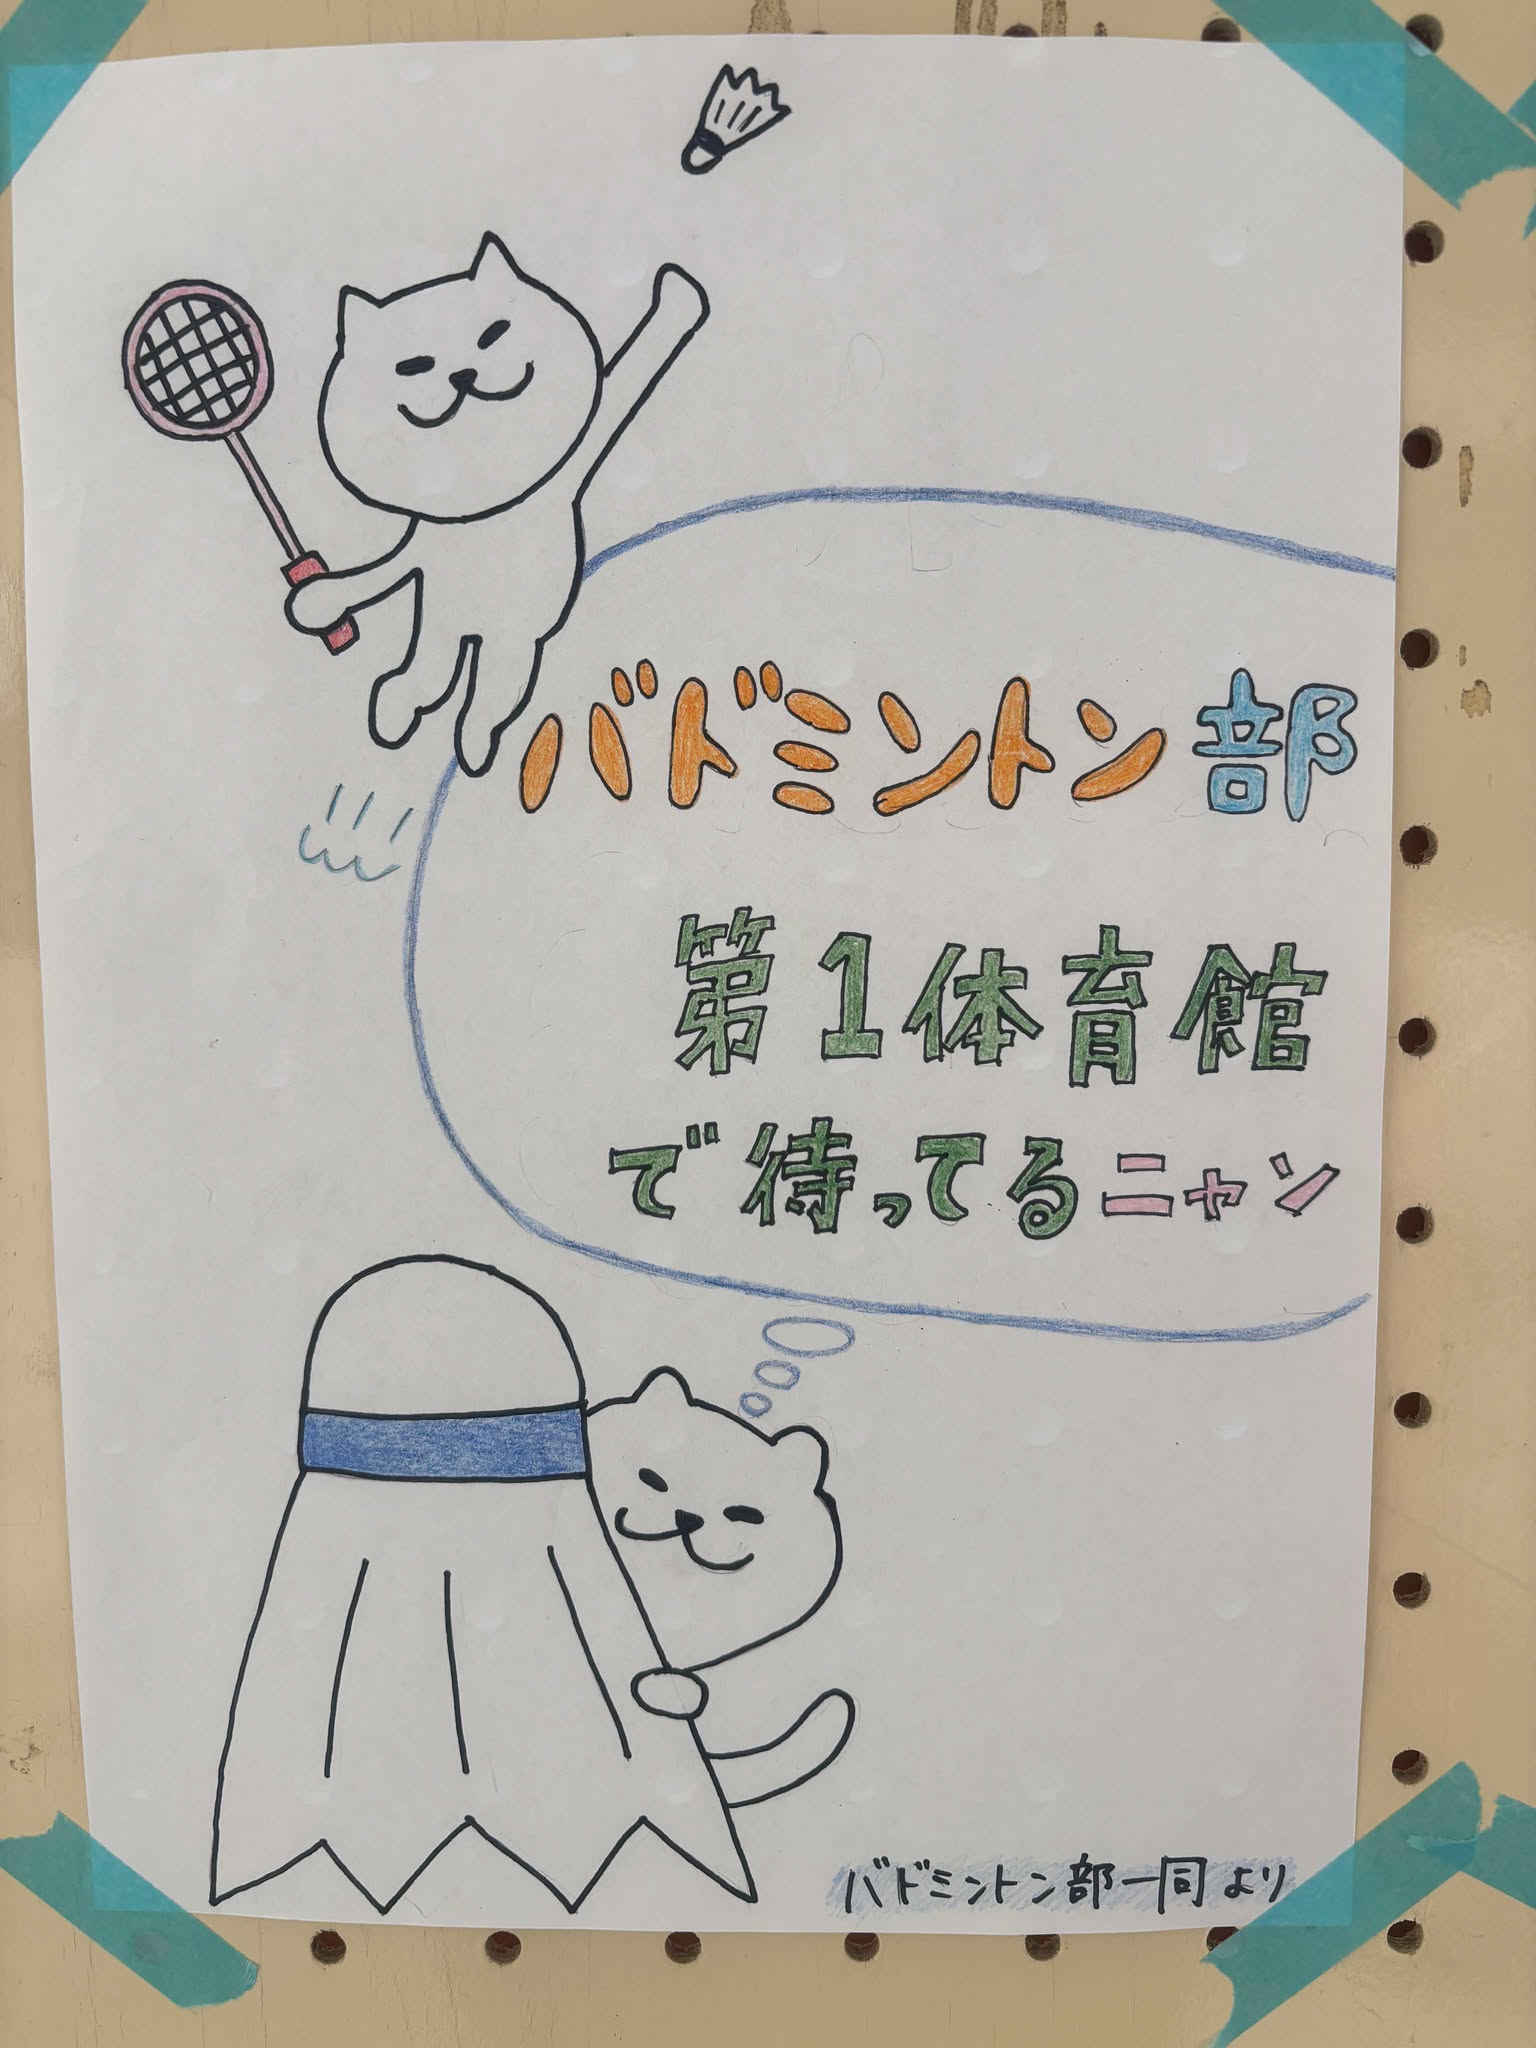 バドミントン部
第1体育館
で待ってるニャン
バドミントン部一同より